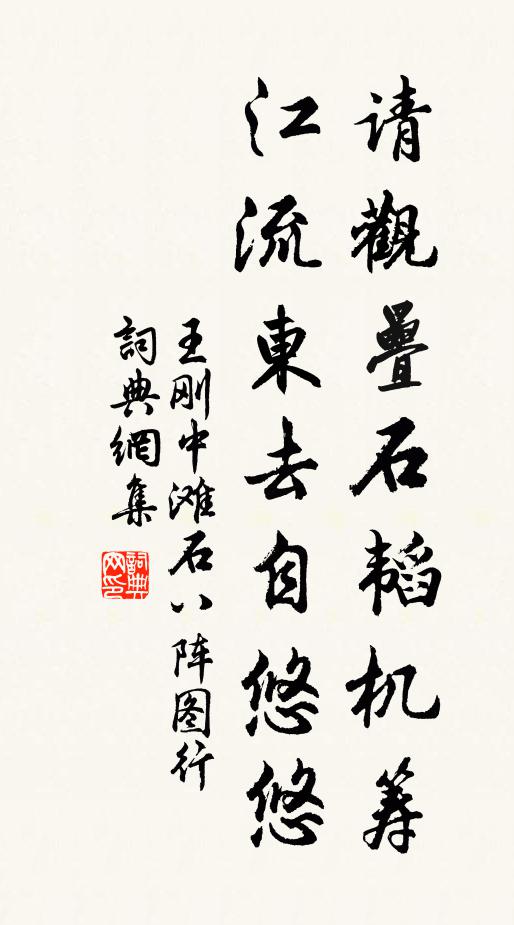 请觀疊石韬机筹
江流東去自悠悠
王刚中滩石八阵图行
詞典網集
詞典網印